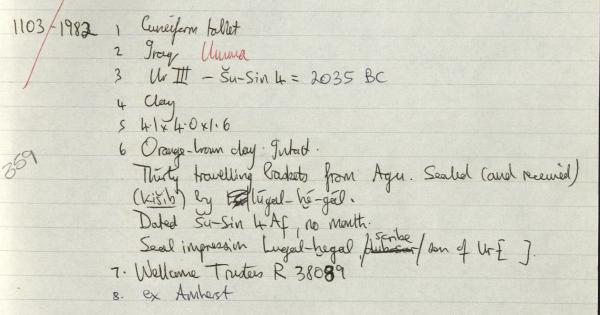 1103-1982 1 Cuneiform tablet
2 Iraq Umma
3 Ur III - Šu-Sin 4 = 2035 BC
4 Clay
5 4.1 x 4.0 x 1.6
359
6 Orange-brown clay. Intact.
Thirty travelling baskets from Agu. Sealed (and received)
(kišib) by lugal-ḫé-gál.
Dated Šu-Sin 4 Af, no month.
Seal impression Lugal-hegal, scribe, son of Ur[ ].
7. Wellcome Trustees R 38089
8. ex Amherst